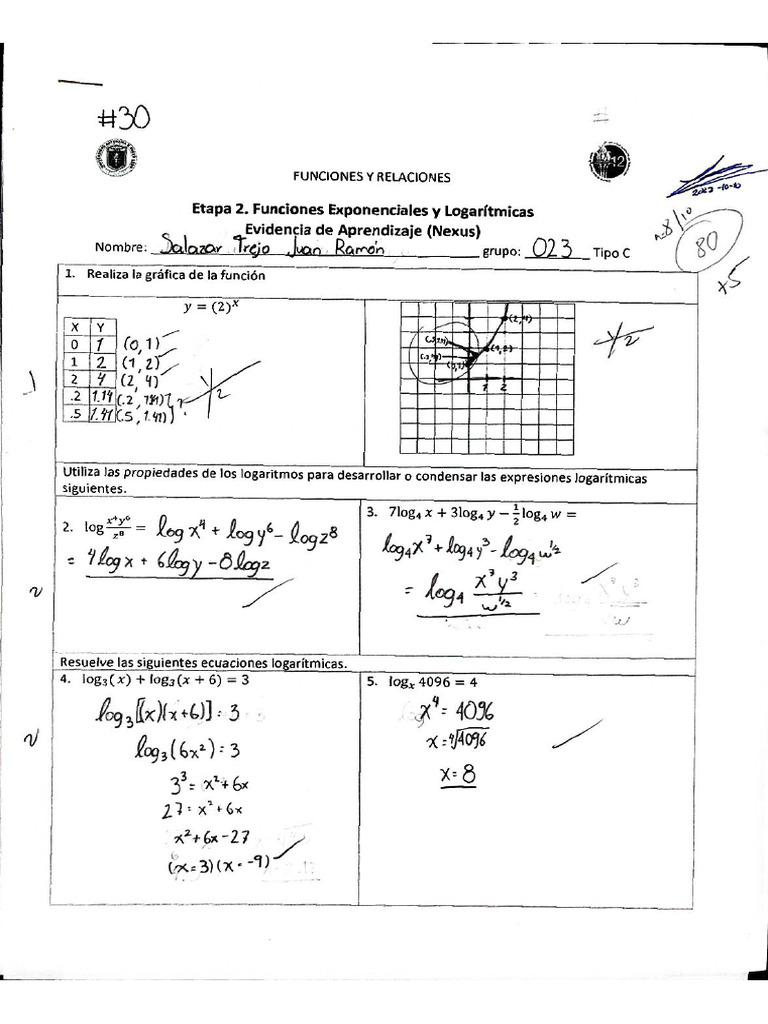 #30
FUNCIONES Y RELACIONES
2022-10-10
Etapa 2. Funciones Exponenciales y Logarítmicas
Evidencia de Aprendizaje (Nexus)
8/10
80
+5
Nombre: Salazar Trejo Juan Ramón grupo: 023 Tipo C
1. Realiza la gráfica de la función
y = (2)^x
X Y
0 1 (0,1)
1 2 (1,2)
2 4 (2,4)
.2 1.14 (.2,
.5 1.41 (.5, 1.41)
(2,4)
(1,2)
(0,1)
1 2
Utiliza las propiedades de los logaritmos para desarrollar o condensar las expresiones logarítmicas
siguientes.
2. log x⁴y⁶/z⁸ = log x⁴ + log y⁶ - log z⁸
= 4log x + 6log y - 8log z
3. 7log₄ x + 3log₄ y − ½log₄ w =
log₄x⁷ + log₄y³ - log₄w^½
= log₄ x⁷y³/w^½
Resuelve las siguientes ecuaciones logarítmicas.
4. log₃(x) + log₃(x + 6) = 3
log₃[(x)(x+6)] = 3
log₃(6x²) = 3
3³ = x² + 6x
27 = x² + 6x
x² + 6x - 27
(x = 3)(x = -9)
5. logₓ 4096 = 4
x⁴ = 4096
x = ⁴√4096
x = 8